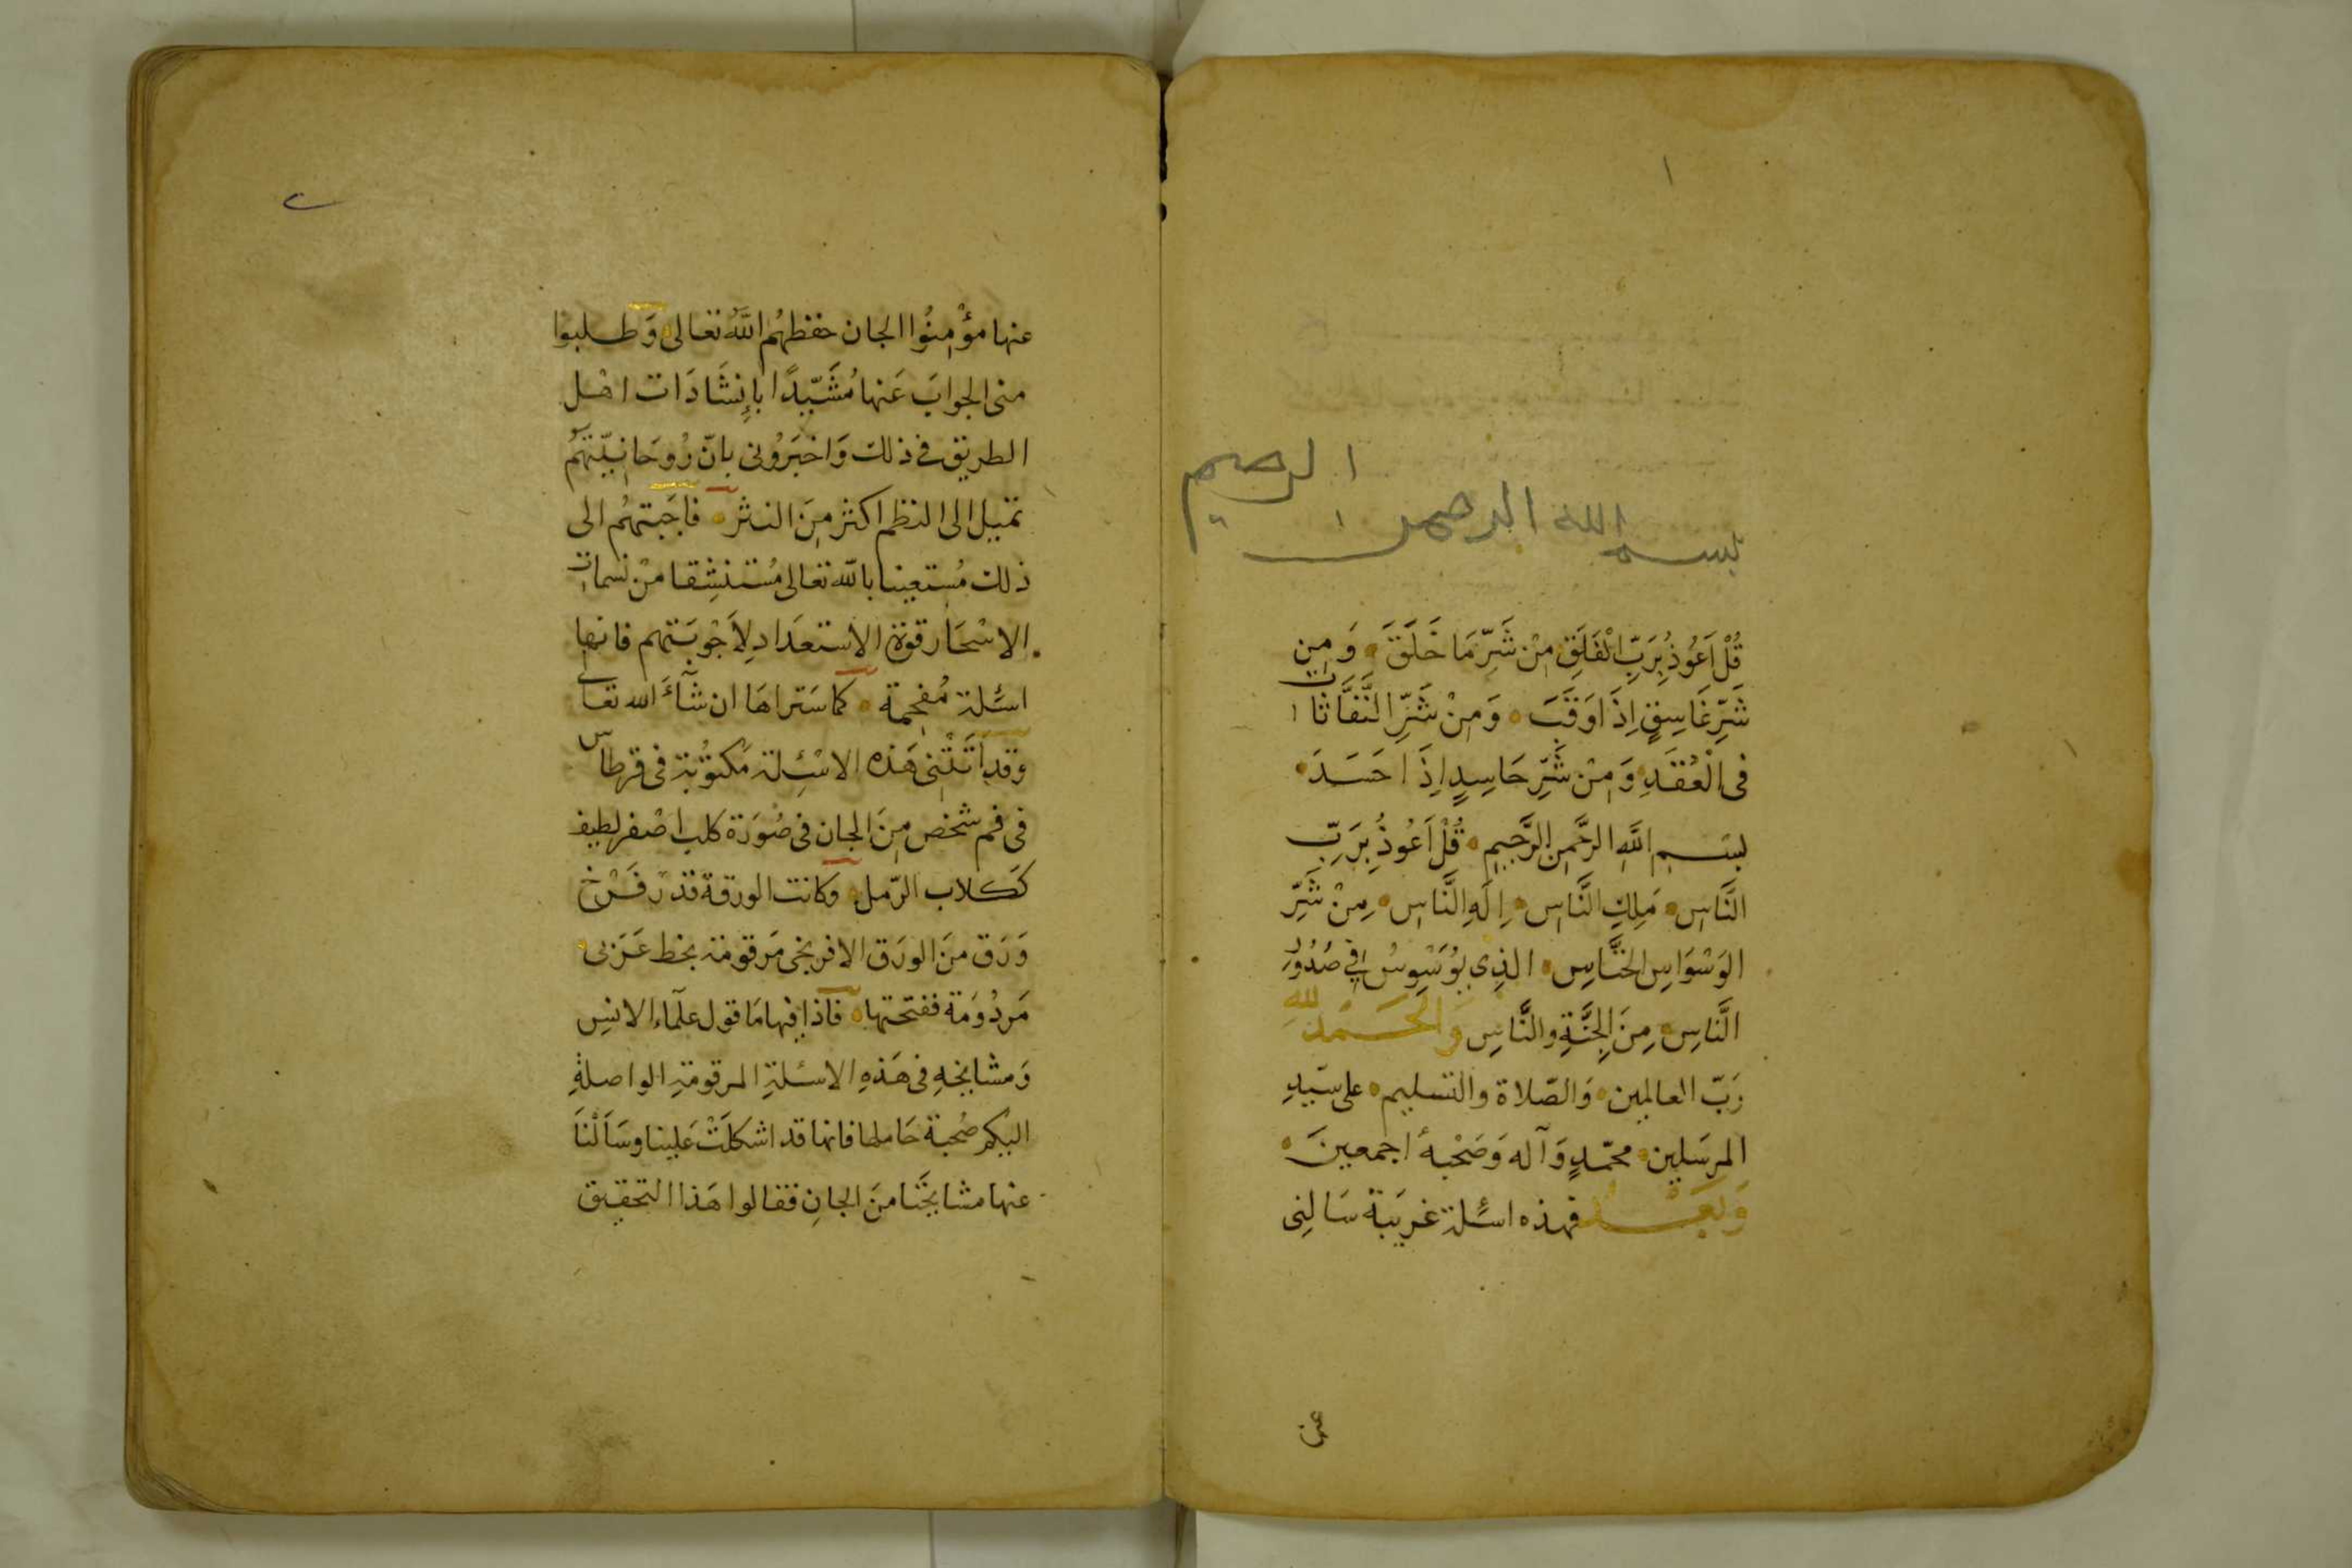 ١
بسم الله الرحمن الرحيم
قُلْ اَعُوذُ بِرَبِّ الْفَلَقِ مِنْ شَرِّ مَا خَلَقَ وَمِن
شَرِّ غَاسِقٍ اِذَا وَقَبَ وَمِنْ شَرِّ النَّفَّاثَات
فى الْعُقَدِ وَمِنْ شَرِّ حَاسِدٍ اِذَا حَسَدَ
بِسْمِ اللَّهِ الرَّحْمنِ الرَّحِيمِ قُلْ اَعُوذُ بِرَبِّ
النَّاسِ مَلِكِ النَّاسِ اِلَهِ النَّاسِ مِنْ شَرِّ
الوَسْوَاسِ الخَنَّاسِ الذِى يُوَسْوِسُ فِى صُدُورِ
النَّاسِ مِنَ الجِنَّةِ والنَّاسِ وَالحَمْدُ لِلهِ
رَبّ العالمين وَالصَّلاة والتسليم على سَيّدِ
المرسَلين محمّدٍ وَآله وَصَحْبه اجمعينَ
وَبَعْد فهذه اسئلة غريبَة سَالنِى
عن
٢
عنها مؤْمِنُوا الجان حفظهُم اللَّهُ تعالى وَطلبوا
منى الجوابَ عَنها مُشَيّدًا بإِنشَادَات اهْل
الطريق فى ذلك وَاخبَرُونى بانّ رُوحَانيّتهُم
تميل الى النظم اكثر مِنَ النثر فاجَبتهُم الى
ذلك مُستعينا بالله تعالى مُستنشِقا منْ نسمات
الاسْحَار قوّة الاستعدَاد لِاَجْوبَتهم فانها
اسئلة مُفحِمة كما سَتراهَا ان شآءَ الله تعالى
وقد اَتَتْنِى هَذه الاسْئِلة مَكتوُبة فى قرطاس
فى فم شخص مِنَ الجان فى صُورَة كلب اصْفر لطيف
كَكلاب الرّمل وكانت الورقة قدْر فَرْخ
وَرَق منَ الورَق الافرنجى مَرقومَة بخط عَرَبى
مَردُومَة ففتحتها فاذا فيها مَا قول علمآء الانسِ
وَمشايخهِ فى هَذهِ الاسئلةِ المرقومَةِ الواصلةِ
اليكم صُحبة حَاملها فانها قد اشكلَتْ عَلينا وسَألْنَا
عنها مشايخَنا منَ الجانِ فقالوا هَذا التحقيق